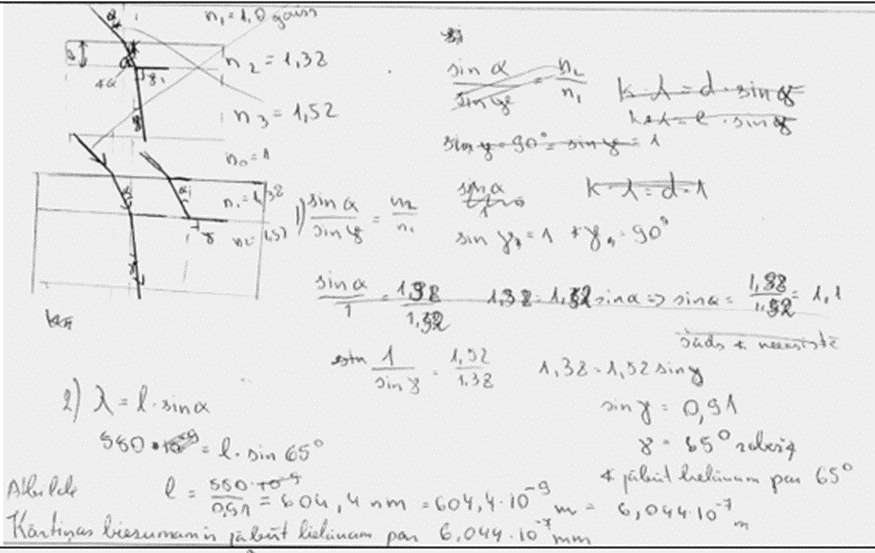 n₁ = 1,0 gaiss
n₂ = 1,38
n₃ = 1,52
sin α / sin γ = n₂ / n₁
k·λ = d·sin γ
k·λ = l·sin γ
sin γ = 90° = sin γ = 1
n₀ = 1
n₁ = 1,38
n₂ = 1,52
1) sin α / sin γ = n₂ / n₁
sin α / 1
k·λ = d·1
sin γ = 1 ∢γ = 90°
sin α / 1 = 1,38 / 1,52 1,38 = 1,52 sin α => sin α = 1,52 = 1,1
šāds ∢ neeksistē
1 / sin γ = 1,52 / 1,38 1,38 = 1,52 sin γ
sin γ = 0,91
γ = 65° robežą
∢ jābūt lielākam par 65°
2) λ = l·sin α
550·10⁻⁹ = l·sin 65°
Atbilde l = 550·10⁻⁹ / 0,91 = 604,4 nm = 604,4·10⁻⁹ m = 6,044·10⁻⁷ m
Kārtiņas biezumam ir jābūt lielākam par 6,044·10⁻⁷ mm